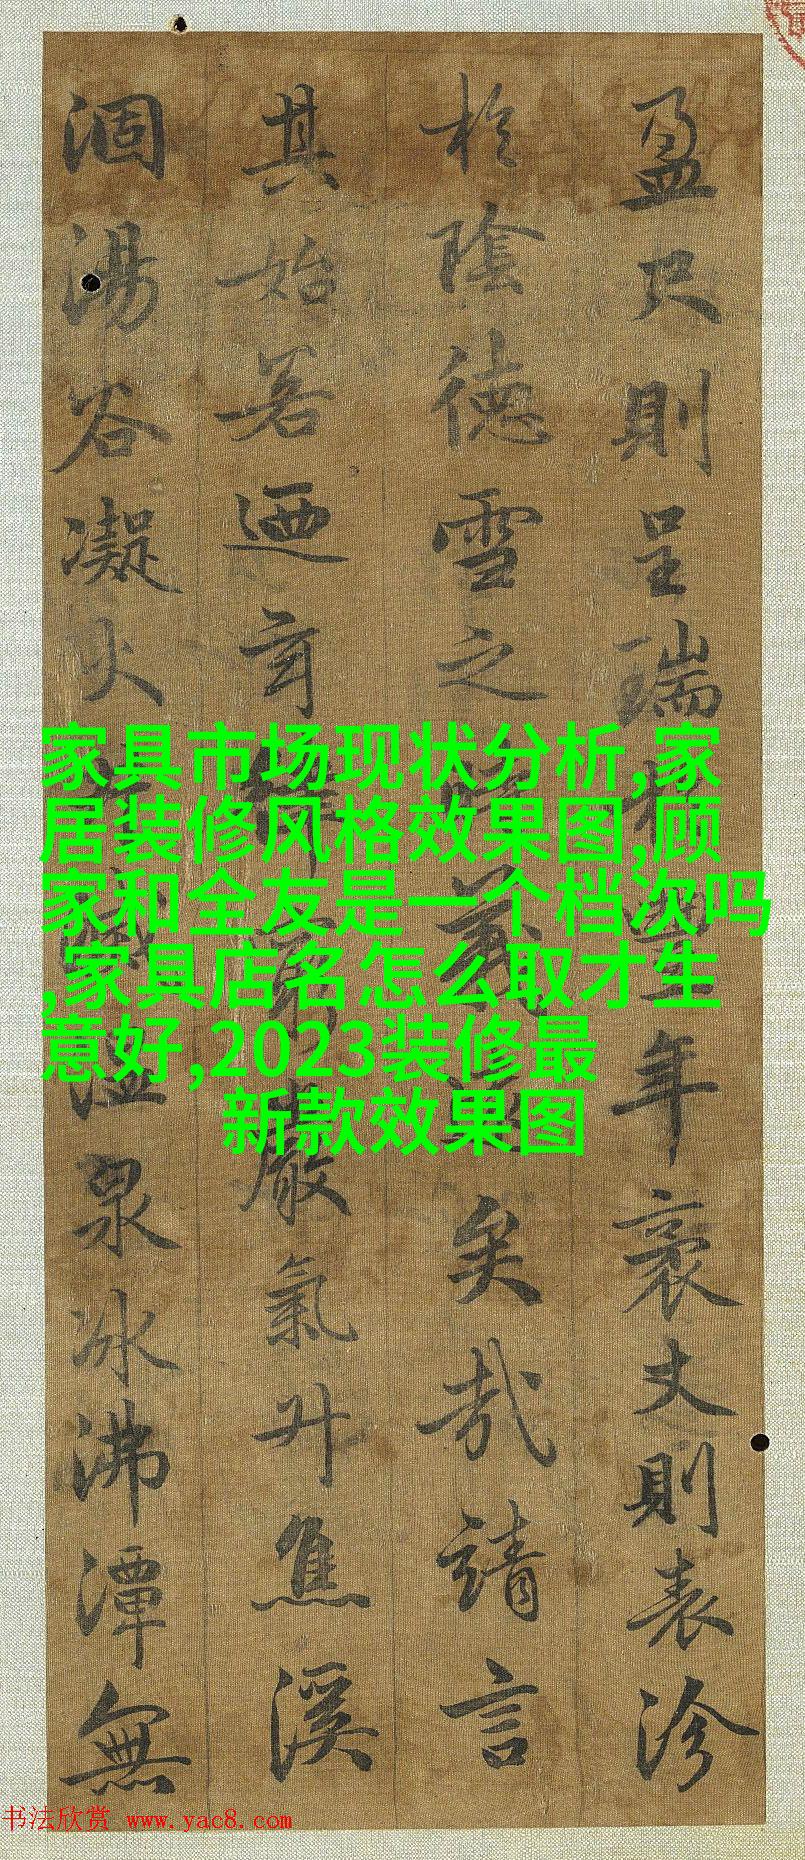 盈尺則呈瑞年袤丈則表沴
於陰德雪之義矣哉請言
其始若迺玄律嚴氣升焦溪
涸湯谷凝火滅溫泉冰沸潭無
家具市场现状分析,家
居装修风格效果图,顾
家和全友是一个档次吗
,家具店名怎么取才生
意好,2023装修最
新款效果图
书法欣赏 www.yac8.com